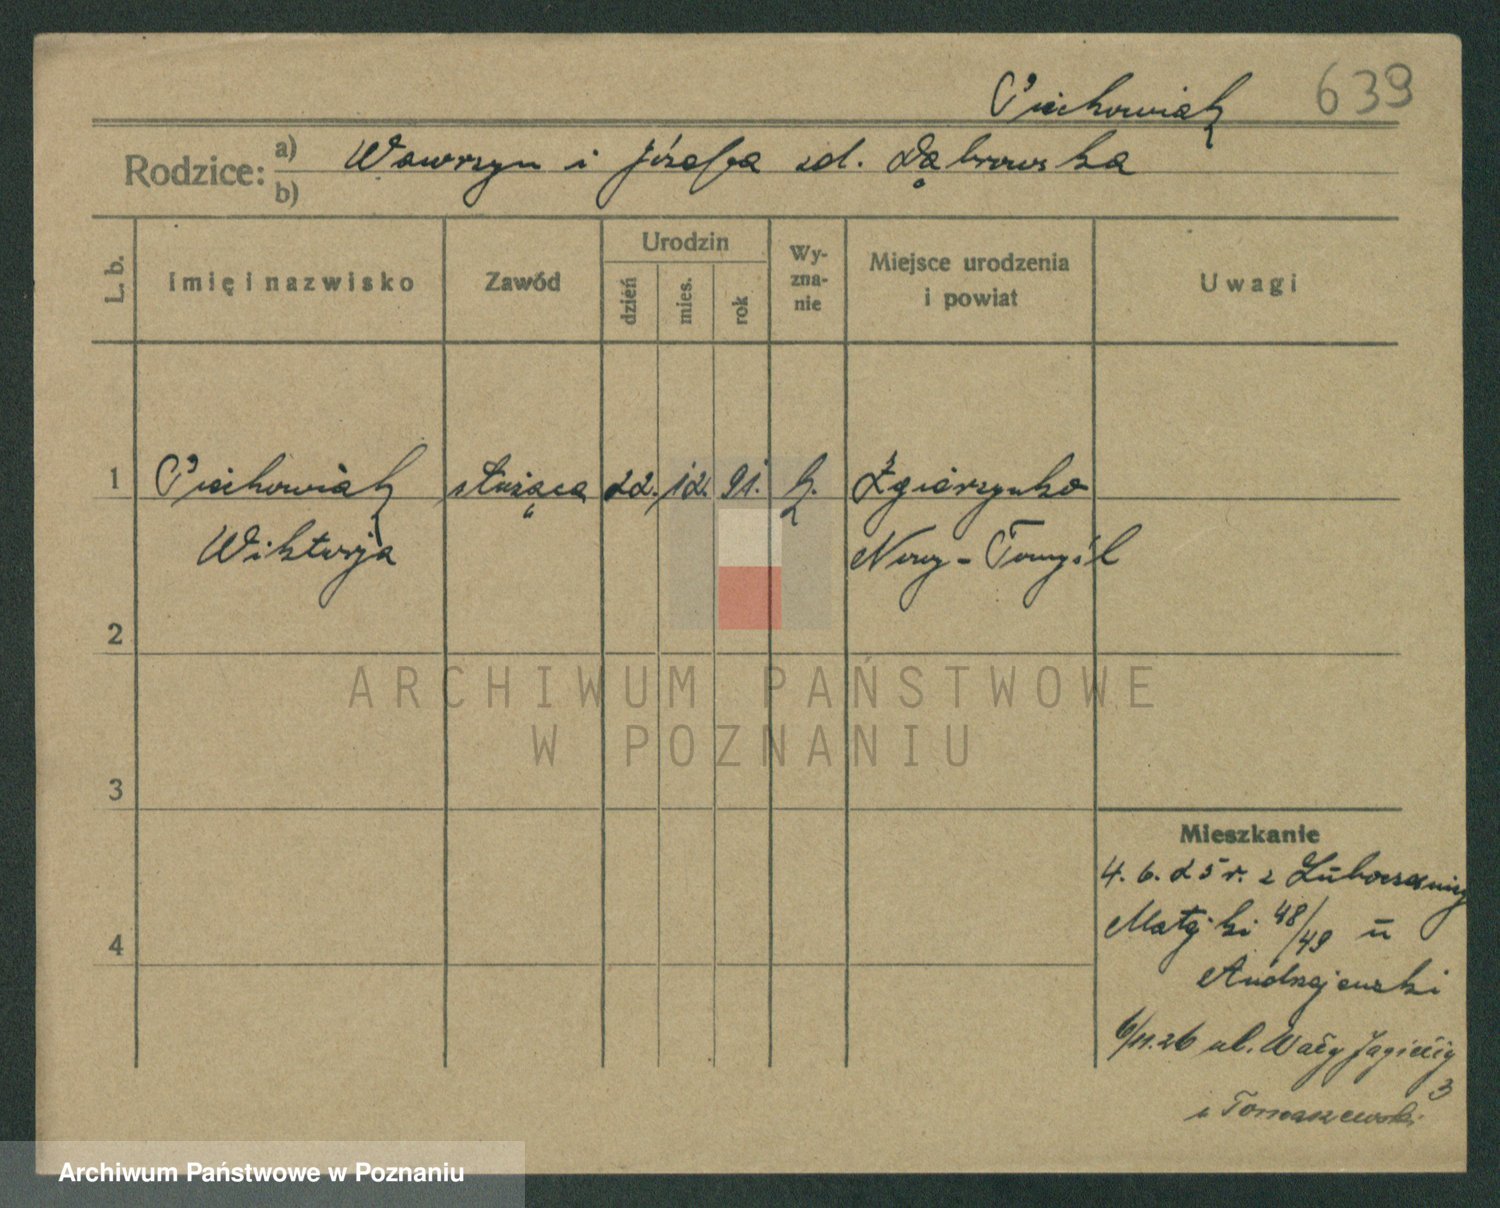 Piechowiak 639
Rodzice: a) Wawrzyn i Józefa zd. Dąbrowska
b)
L. b. Imię i nazwisko Zawód Urodzin dzień mies. rok Wyznanie Miejsce urodzenia i powiat Uwagi
1 Piechowiak służąca 22. 12. 91. k. Zgierzynka
Wiktorja Nowy-Tomyśl
2
ARCHIWUM PAŃSTWOWE
W POZNANIU
3
Mieszkanie
4. 6. 25 r. z
Matejki 48/49 u
4
Andrzejewski
6/11.26 ul. Wały Jagiełły
3
u Tomaszewski
Archiwum Państwowe w Poznaniu